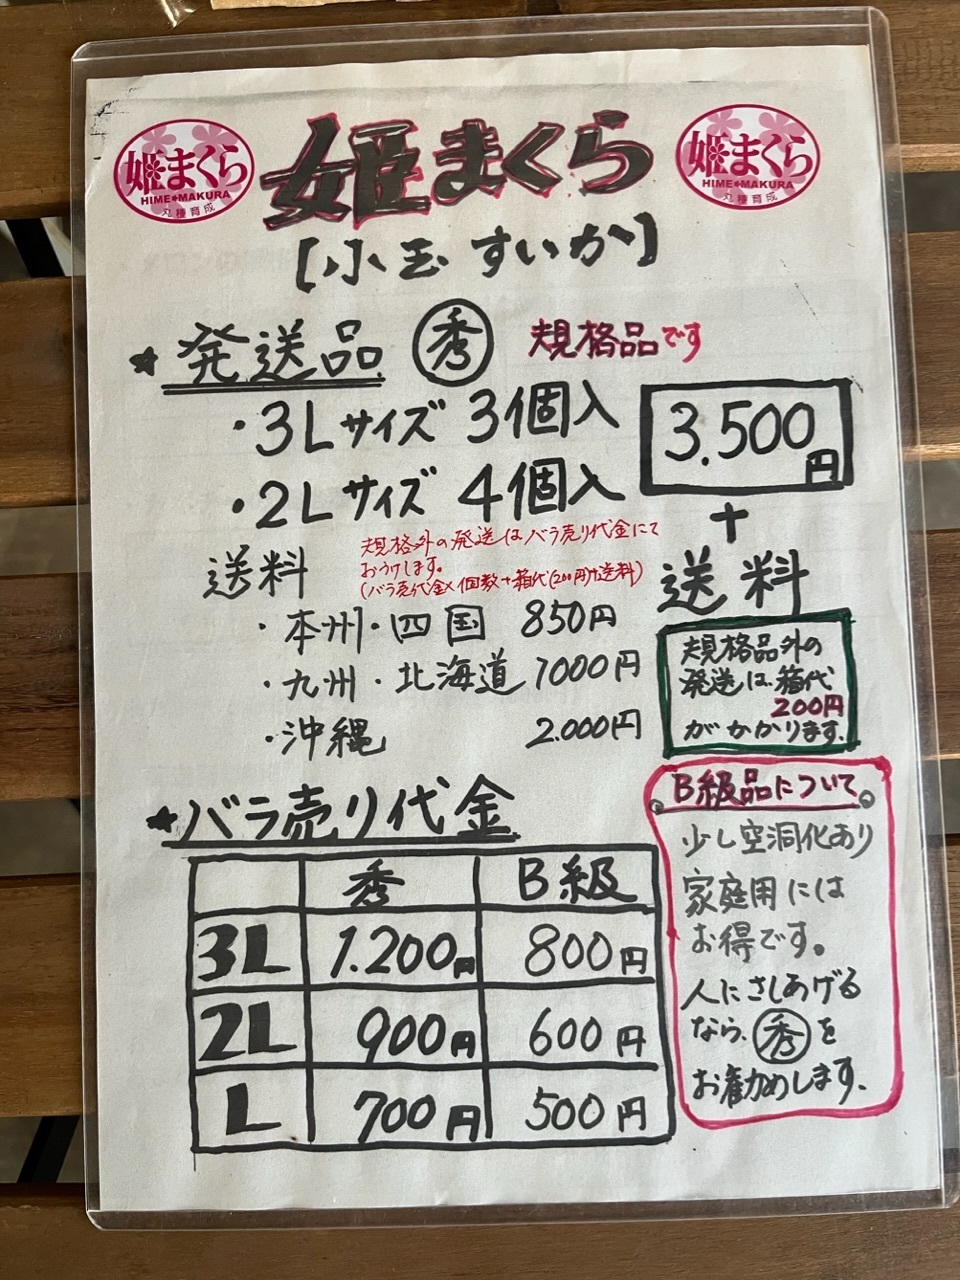 姫まくら
HIME★MAKURA
丸種育成
姫まくら
姫まくら
HIME★MAKURA
丸種育成
【小玉すいか】
★発送品 ㊙秀 規格品です
・3Lサイズ 3個入
・2Lサイズ 4個入
3.500円
+
送料
規格外の発送はバラ売り代金にて
おうけします。
(バラ売代金×個数+箱代(200円)+送料)
送料
・本州・四国 850円
・九州・北海道 1000円
・沖縄 2.000円
規格品外の
発送は箱代
200円
がかかります。
★バラ売り代金
秀 B級
3L 1.200円 800円
2L 900円 600円
L 700円 500円
B級品について
少し空洞化あり
家庭用には
お得です。
人にさしあげる
なら、秀を
お勧めします。